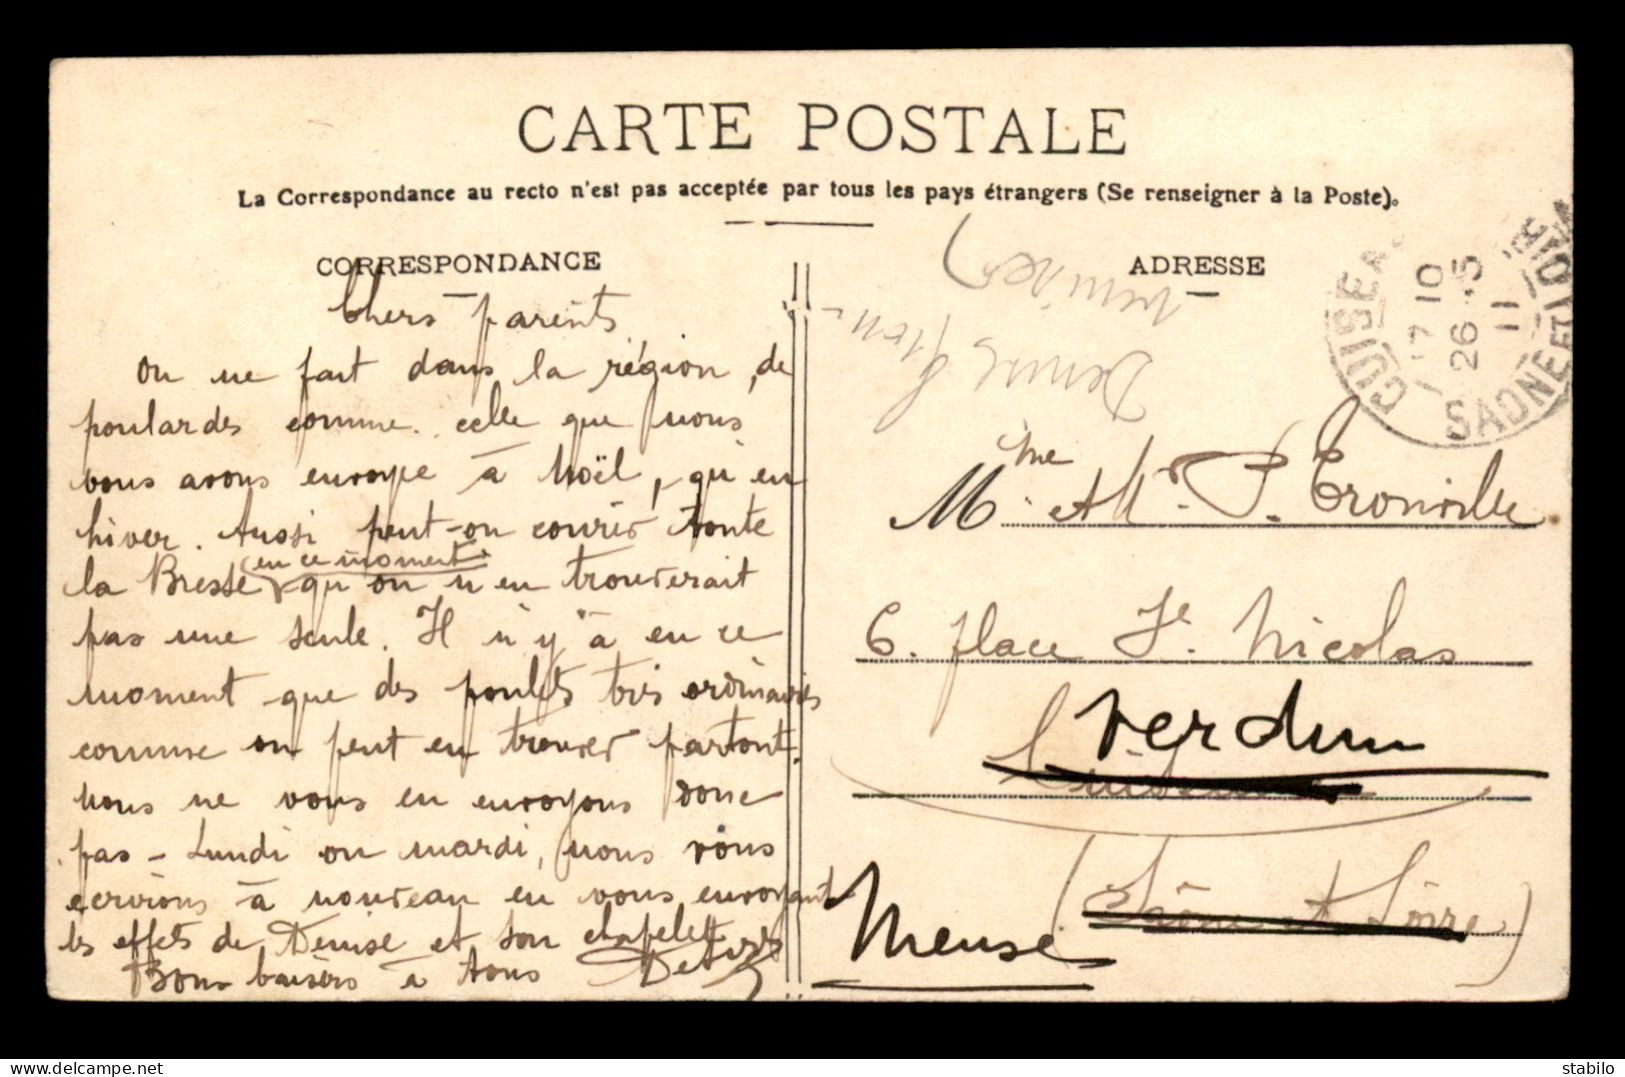 CARTE POSTALE
La Correspondance au recto n'est pas acceptée par tous les pays étrangers (Se renseigner à la Poste).
CORRESPONDANCE
Chers parents
On ne fait dans la région, de
poulardes comme celle que nous
vous avons envoyée à Noël, qu'en
hiver. Aussi peut-on courir toute
la Bresse en ce moment qu'on n'en trouverait
pas une seule. Il n'y a en ce
moment que des poulets très ordinaires
comme on peut en trouver partout.
Nous ne vous en envoyons donc
pas - Lundi ou mardi, nous vous
écrirons à nouveau en vous envoyant
les effets de Denise et son chapelet
Bons baisers à tous
ADRESSE
CUISEAUX
17 10
26 -5
11
SAONE ET LOIRE
Denise
Mme et Mr P. Tronville
6. place St. Nicolas
Verdun
(Saône et Loire)
Meuse
stabilo